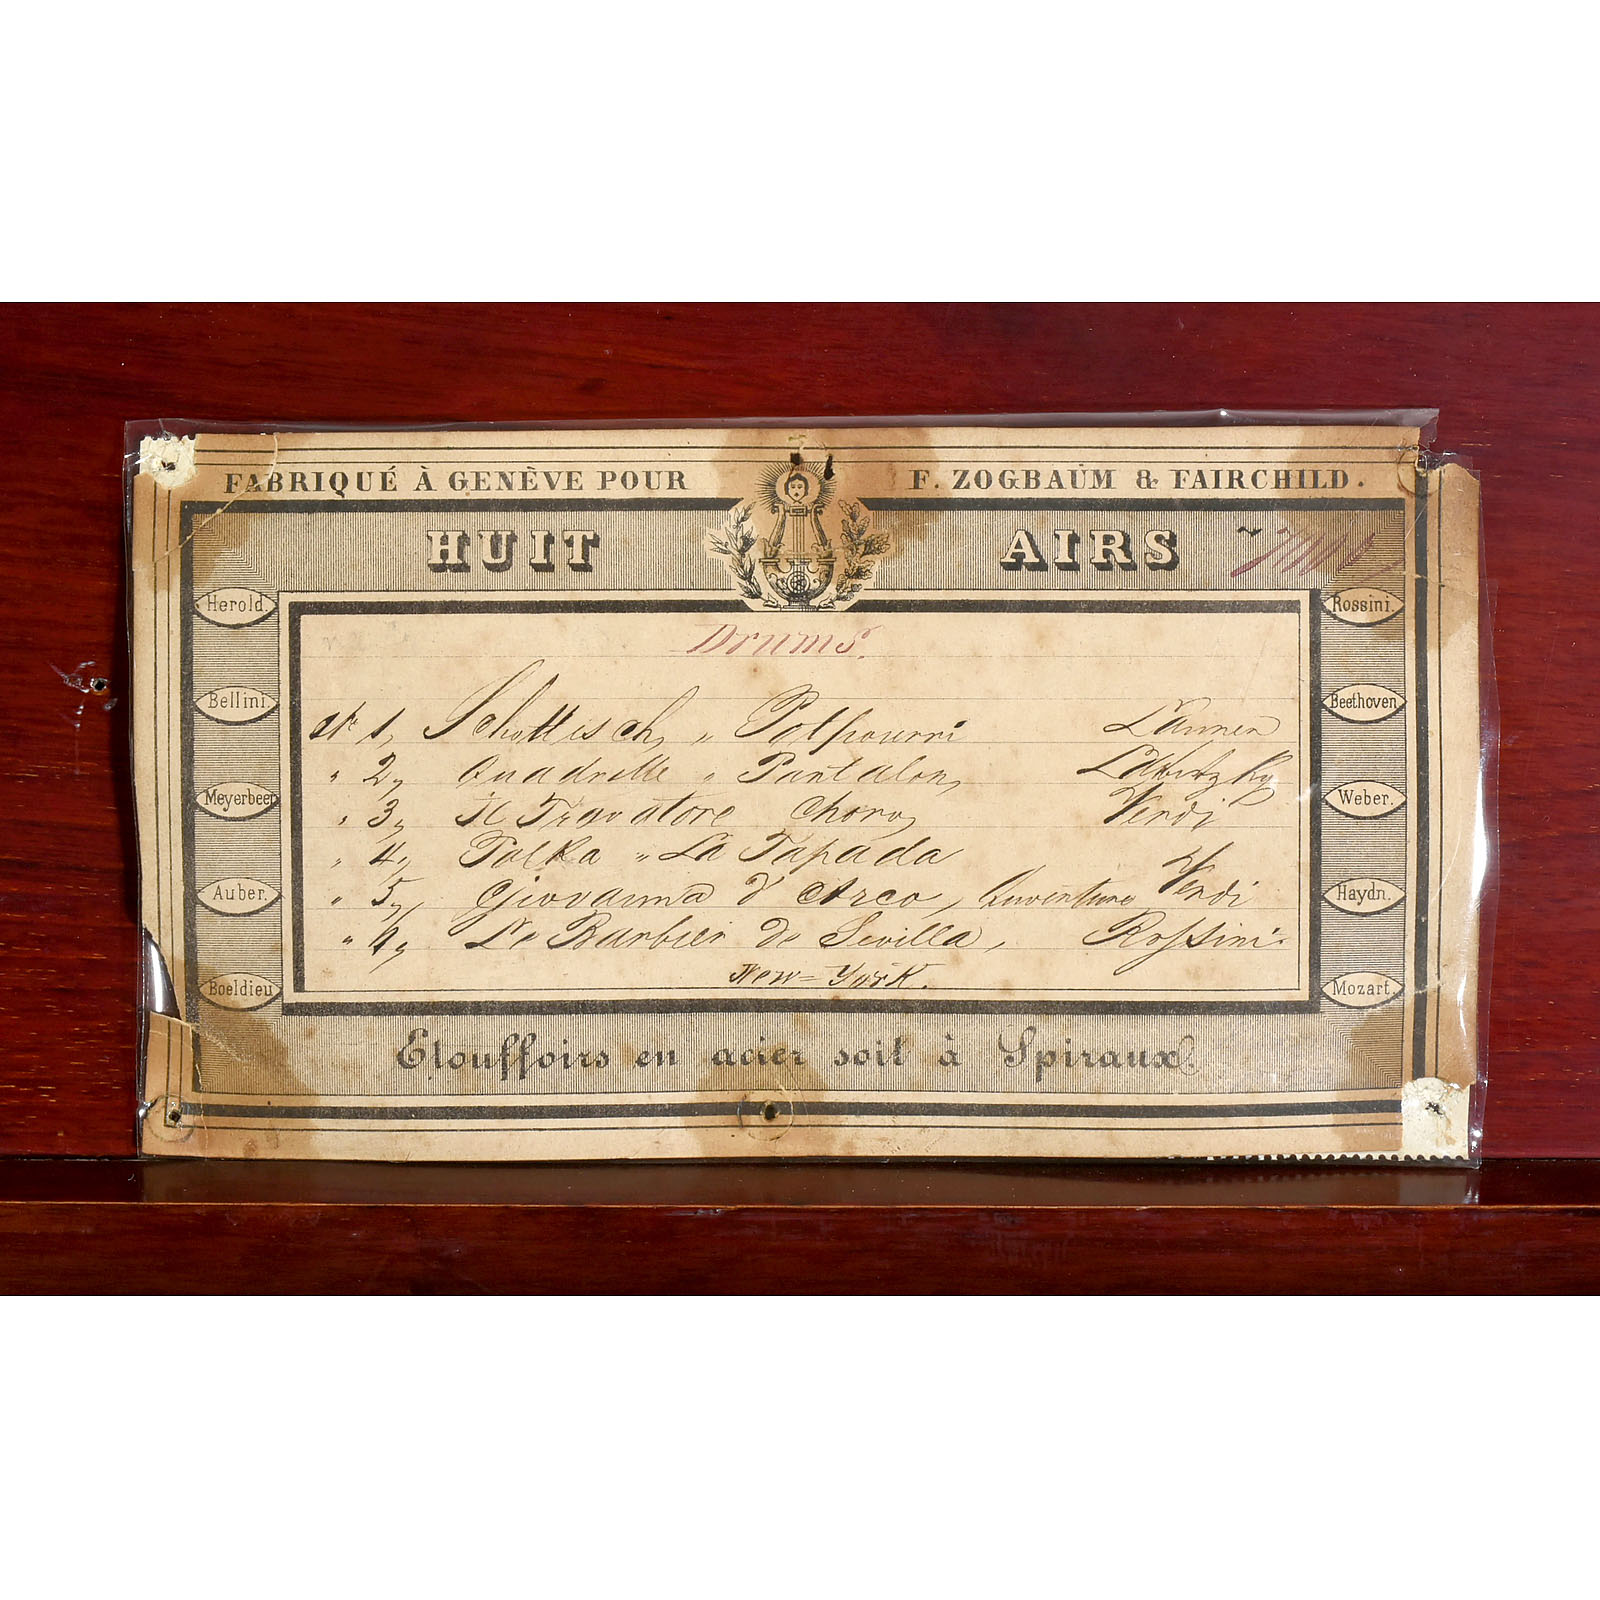 FABRIQUÉ À GENÈVE POUR F. ZOGBAUM & FAIRCHILD.
HUIT AIRS
Herold. Rossini.
Bellini. Beethoven
Meyerbeer Weber.
Auber. Haydn.
Boeldieu Mozart.
Drums.
No 1, Schottisch, " Potpourri Lanner
" 2, Quadrille " Pantalon, Labitzky
" 3, Il Trovatore Choro, Verdi
" 4, Polka " La Tapada
" 5, Giovanna d'Arco, Ouverture Verdi
" 6, Le Barbier de Sevilla, Rossini.
New=York.
Etouffoirs en acier soit à Spiraux.